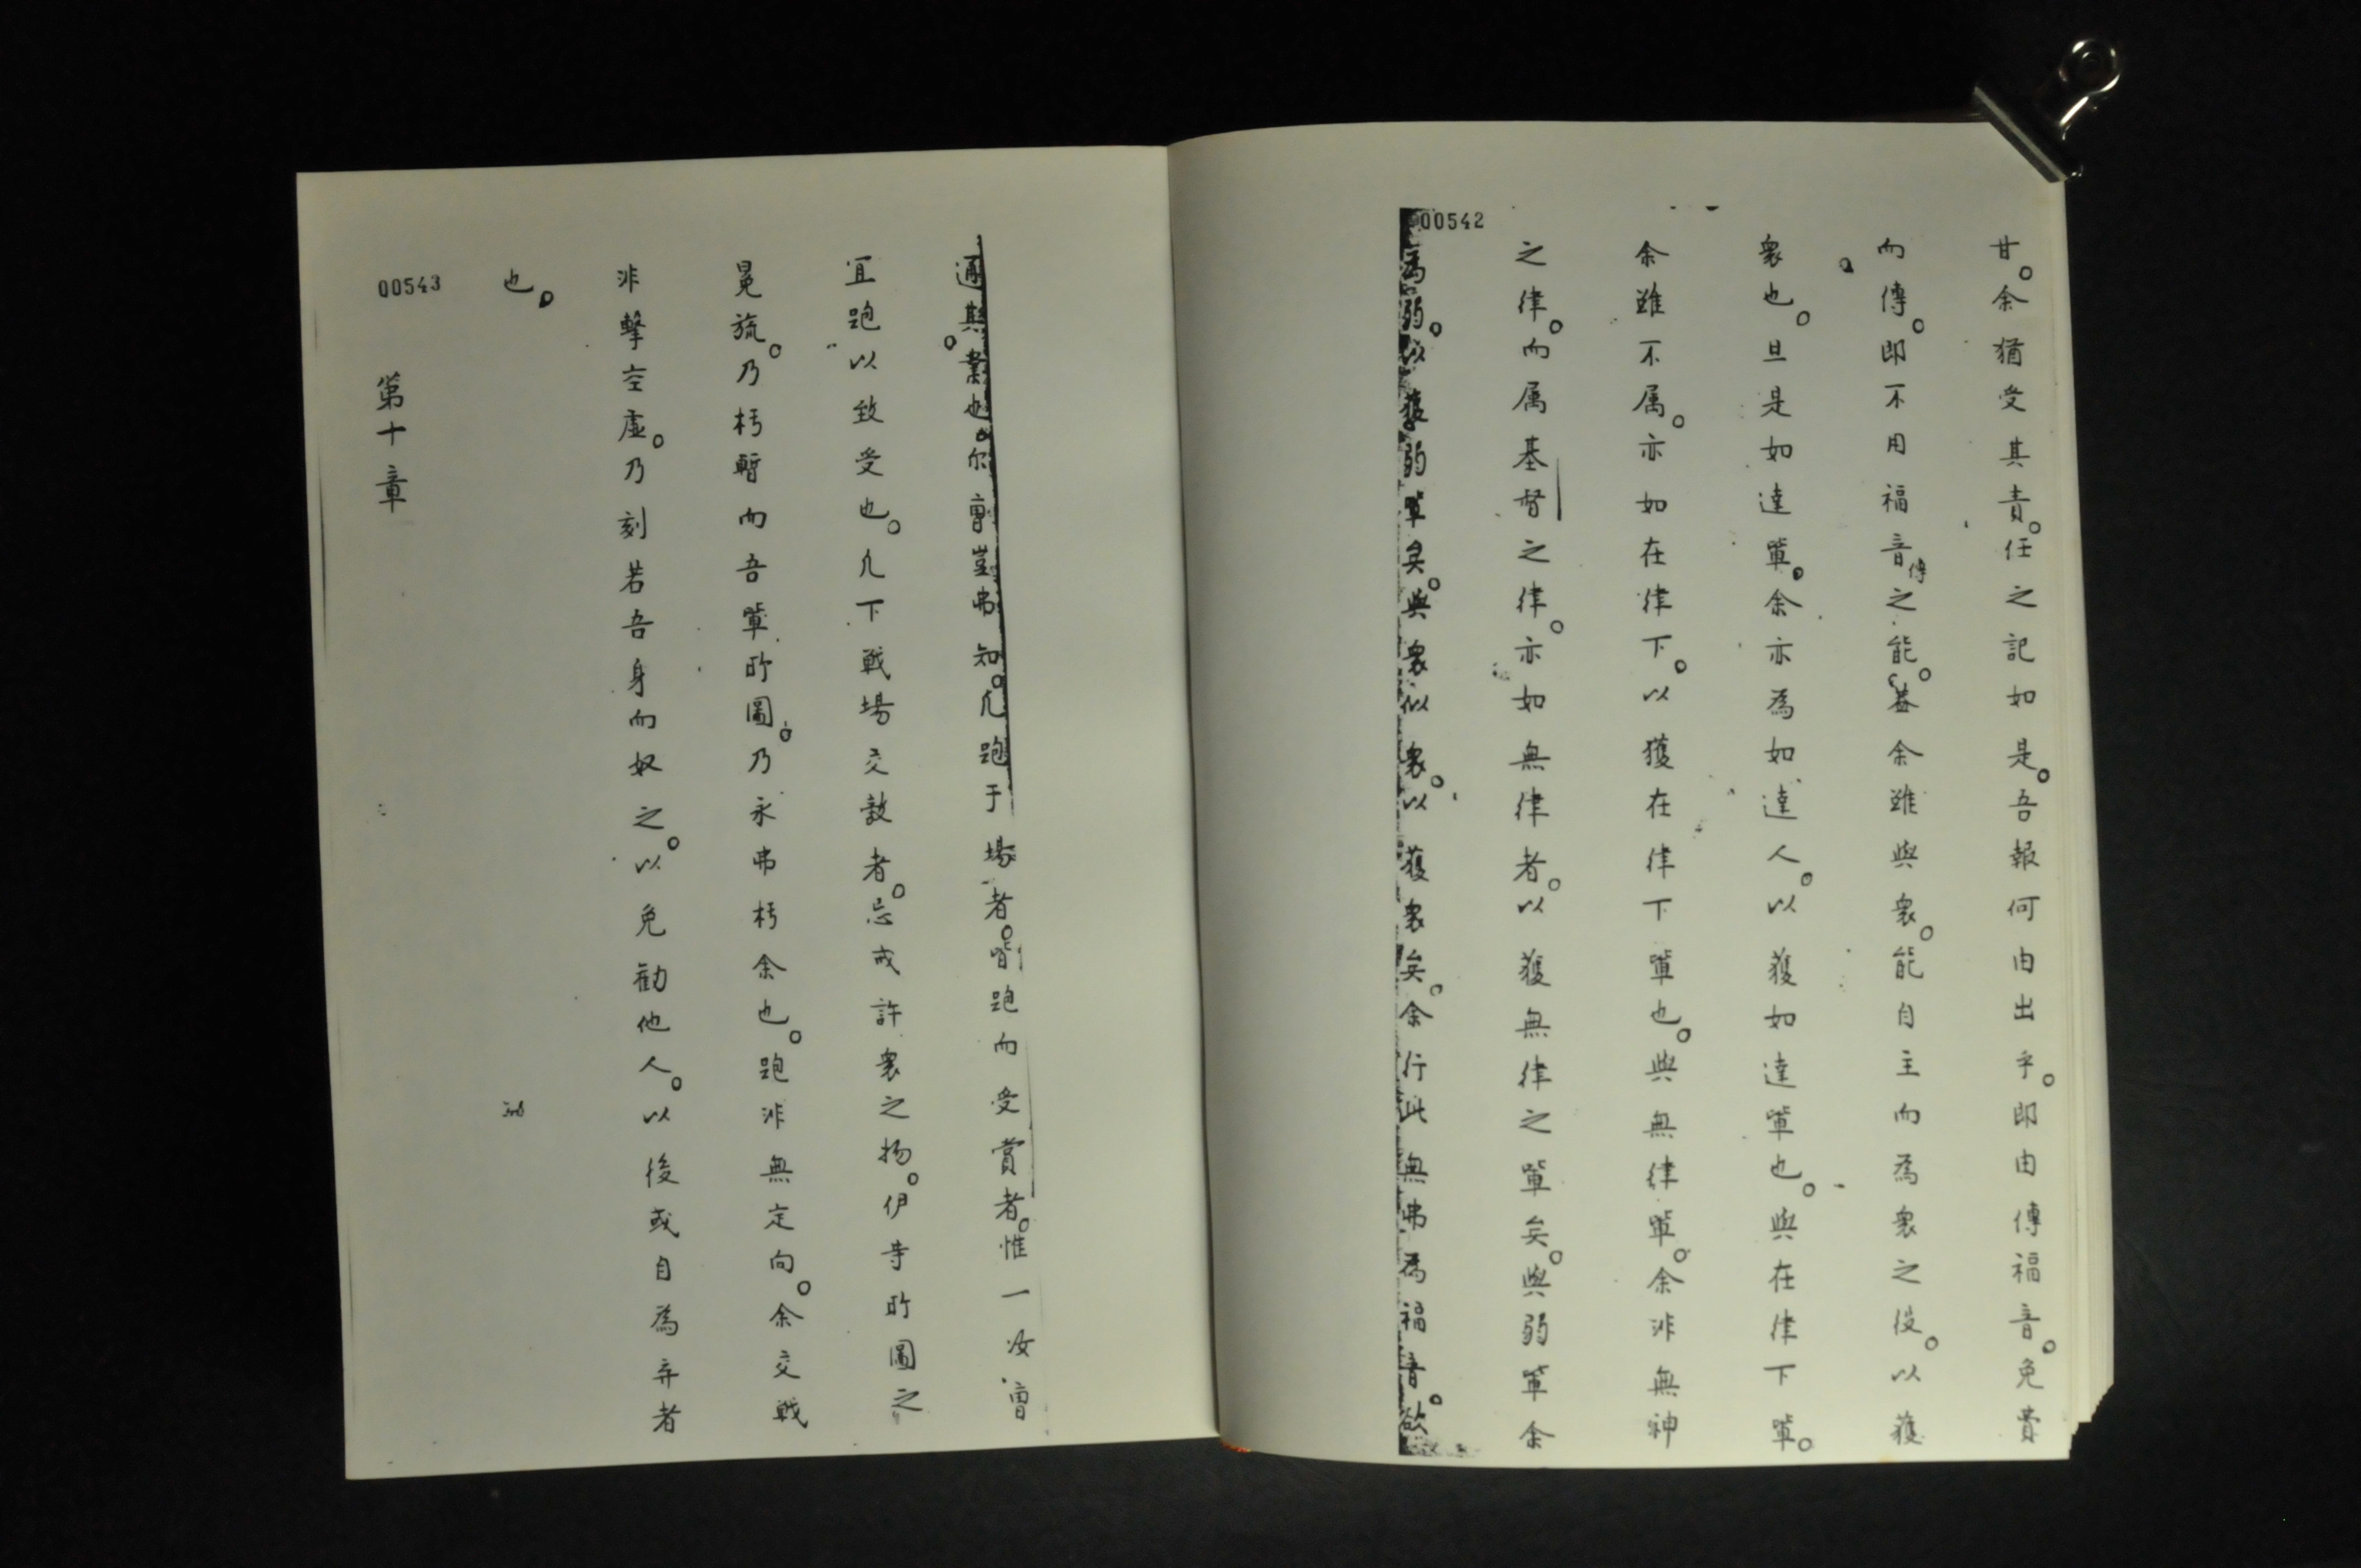 甘。余猶受其責。任之記如是。吾報何由出乎。即由傳福音。免費
而傳。即不用福音傳之能。蓋余雖與衆。能自主而為衆之役。以獲
衆也。且是如達軰。余亦為如達人。以獲如達軰也。與在律下軰。
余雖不属。亦如在律下。以獲在律下軰也。與無律軰。余非無神
之律。而属基督之律。亦如無律者。以獲無律之軰矣。與弱軰余
為弱。以獲弱軰矣。與衆似衆。以獲衆矣。余行此無弗為福音。欲
00542
通其業也。尔曹豈弗知。凡跑于場者。皆跑而受賞者。惟一汝曹
宜跑以致受也。凡下戰場交敵者。忌戒許衆之物。伊等所圖之
冕旒。乃朽暫而吾軰所圖。乃永弗朽余也。跑非無定向。余交戰
非擊空虛。乃刻苦吾身而奴之。以免勸他人。以後或自為弃者
也。
第十章
00543